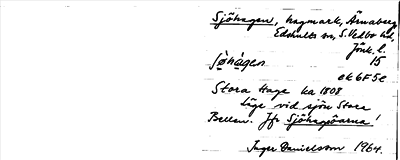 Sjöhagen, hagmark, Ärnaberg
Edshults sn, S. Vedbo hd,
Jönk. l.
sjöhagen 15
ek 6F5e
Stora Hage ka 1808
Läge vid sjön Stora
Bellen. Jfr Sjöhagöarna!
Inger Danielsson 1964.